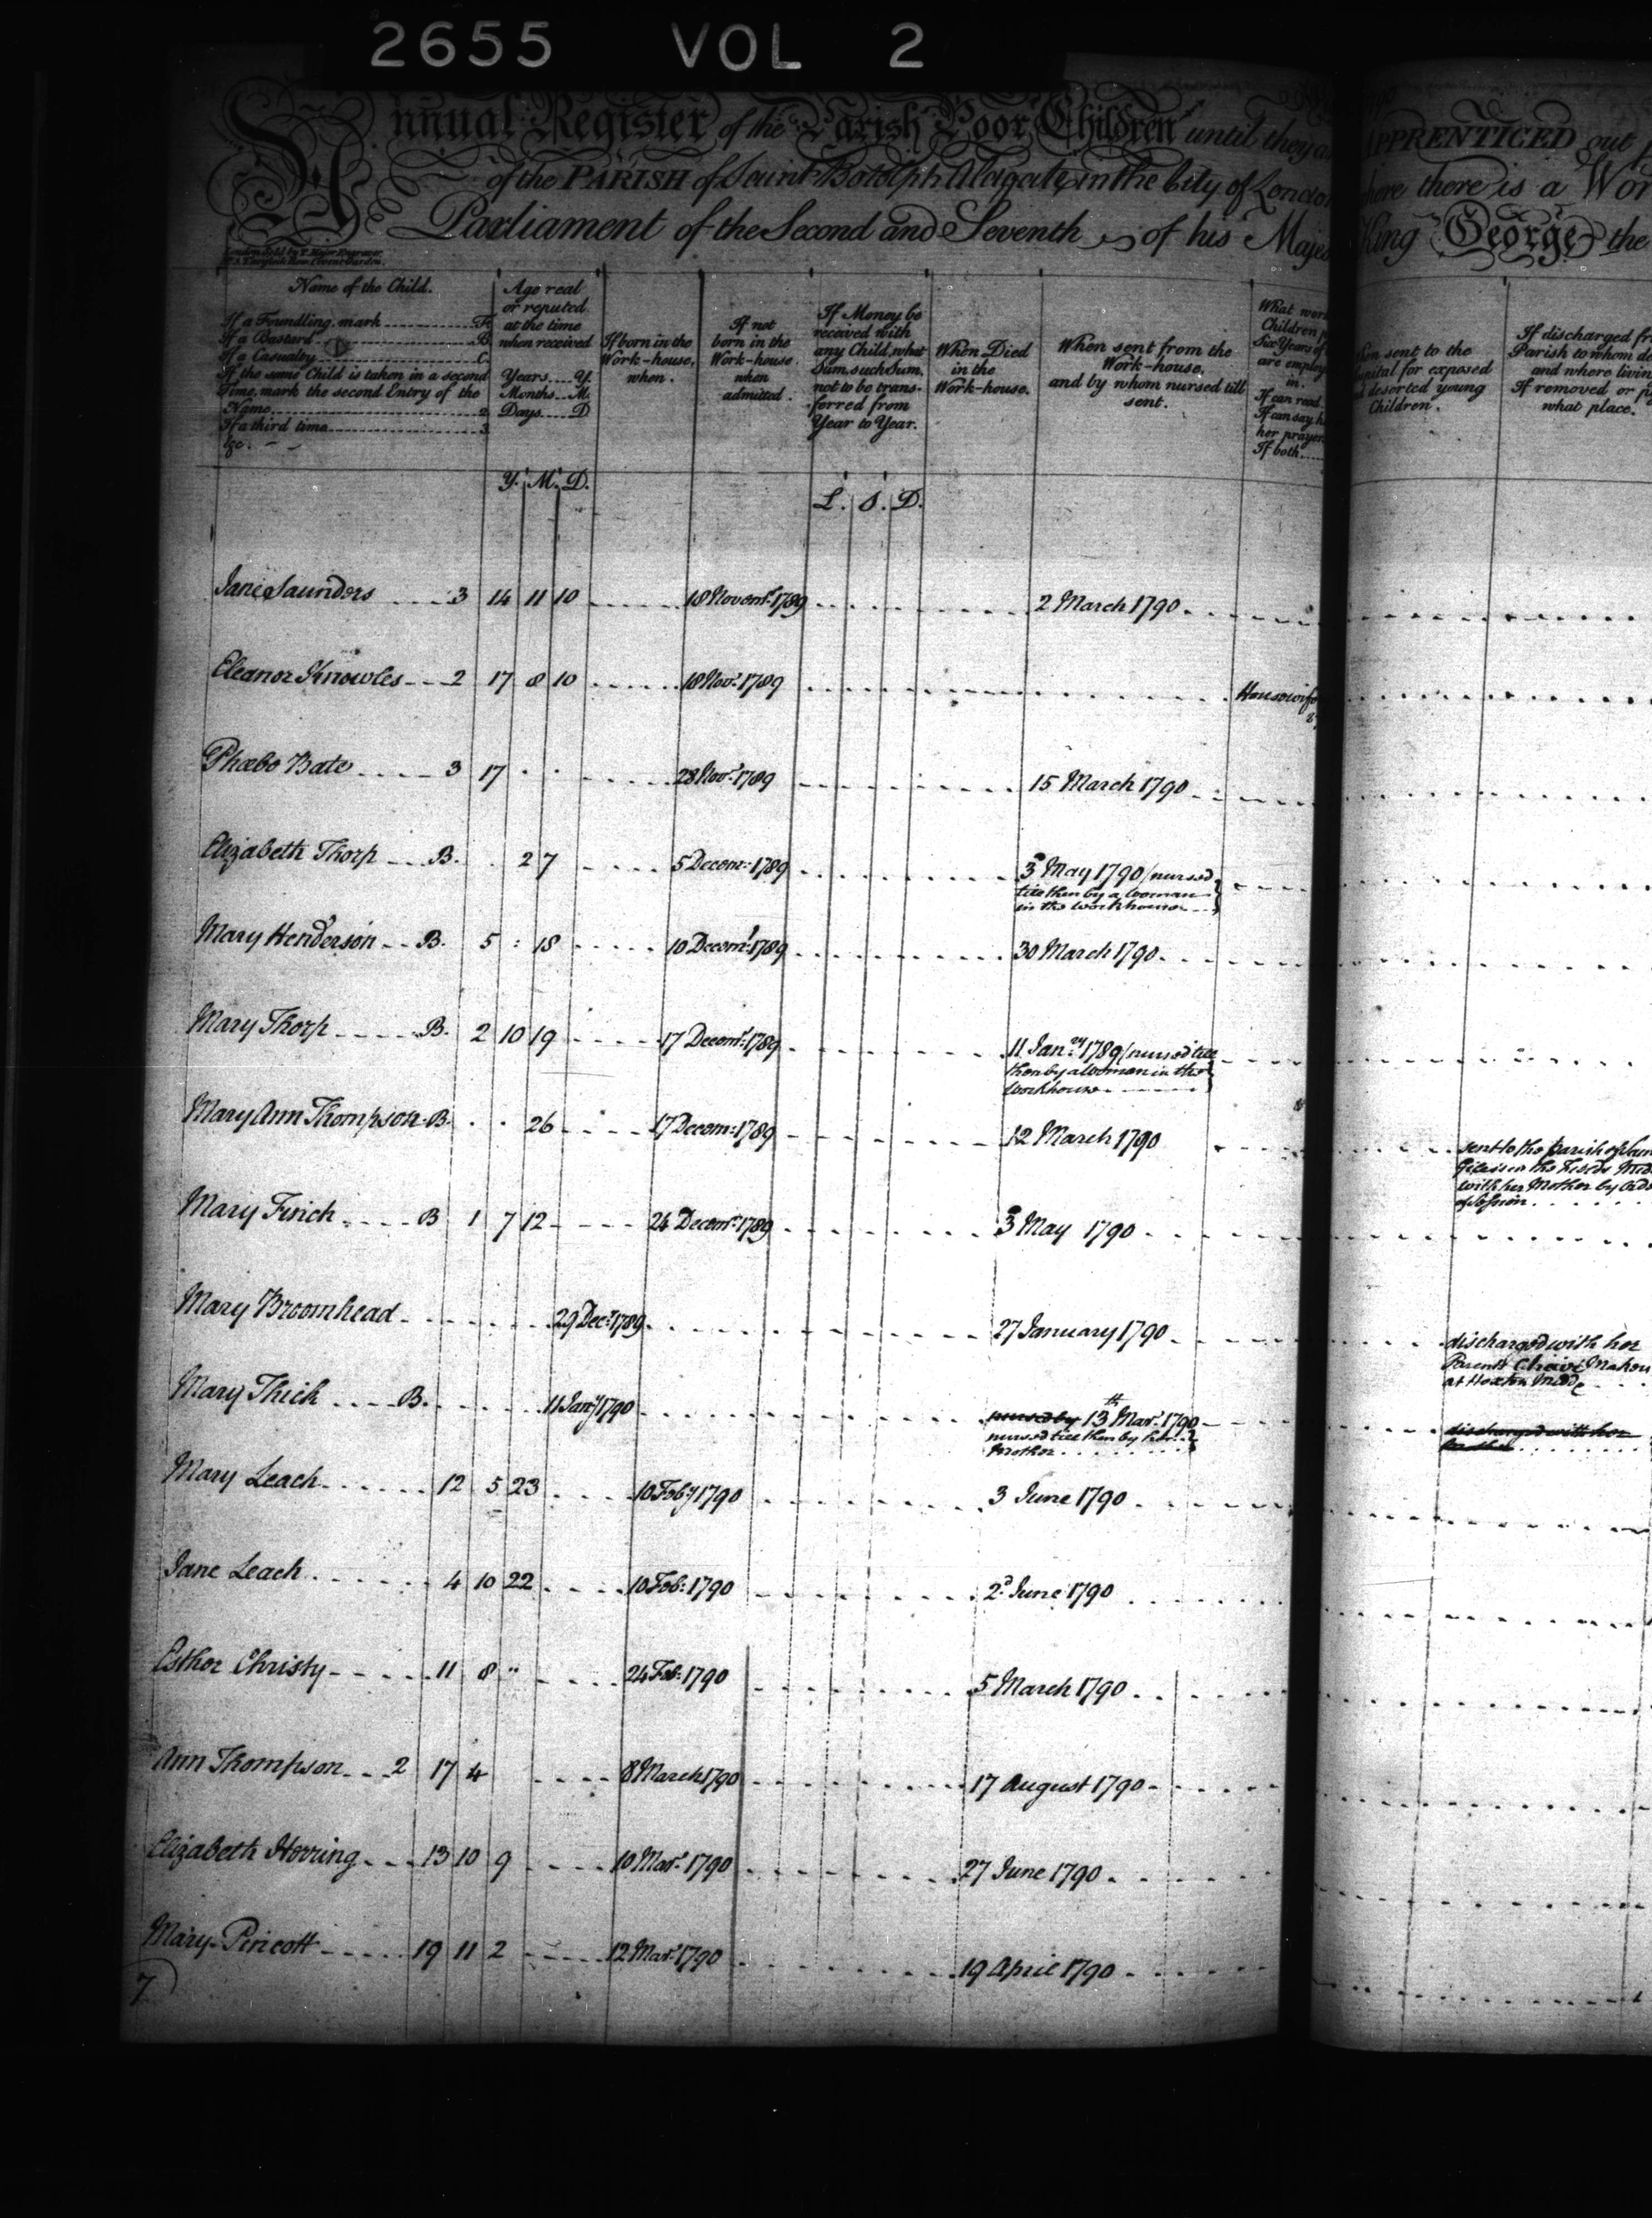 2655 VOL 2
Annual Register of the Parish Poor Children until they
APPRENTICED out
of the PARISH of Saint Botolph Aldgate in the City of London
where there is a Wor
Parliament of the Second and Seventh of his Majes
King George the
London Sold by
Name of the Child.
If a Foundling, mark F.
If a Bastard B.
If a Casualty C.
If the same Child is taken in a second
Time, mark the second Entry of the
Name 2.
If a third time 3.
&c.
Age real
or reputed
at the time
when received
Years Y.
Months M.
Days D
If born in the
Work-house,
when.
If not
born in the
Work-house
when
admitted.
If Money be
received with
any Child, what
Sum, such Sum,
not to be trans-
ferred from
Year to Year.
When Died
in the
Work-house.
When sent from the
Work-house,
and by whom nursed till
sent.
What wor
Children
Six Years o
are employ
in.
If can read
If can say h
her prayer
If both
sent to the
Hospital for exposed
deserted young
Children.
If discharged fr
Parish to whom de
and where livin
If removed or p
what place.
Y. M. D.
L. S. D.
Jane Saunders 3 14 11 10 18 Novemr. 1789 2 March 1790
Eleanor Knowles 2 17 8 10 18 Novr. 1789 Housewife
Phœbe Bate 3 17 28 Novr. 1789 15 March 1790
Elizabeth Thorp B. 2 7 5 Decemr. 1789 3d May 1790 / nursed
till then by a woman
in the workhouse
Mary Henderson B. 5 18 10 Decemr. 1789 30 March 1790
Mary Thorp B. 2 10 19 17 Decemr. 1789 11 Jany. 1789 / nursed till
then by a Woman in the
workhouse
Mary Ann Thompson B. 26 17 Decem: 1789 12 March 1790
sent to the parish of
Giles in the Fields
with her Mother by
Mary Finch B 1 7 12 24 Decemr. 1789 3d May 1790
Mary Broomhead 29 Decr. 1789 27 January 1790
discharged with her
Parents Chair Maker
at Hoxton Middx
Mary Thick B. 11 Jany 1790 nursed by 13th Mar. 1790
nursed till then by her
Mother
discharged with her
Mother
Mary Leach 12 5 23 10 Feby 1790 3 June 1790
Jane Leach 4 10 22 10 Feb: 1790 2d June 1790
Esther Christy 11 8 " 24 Feb: 1790 5 March 1790
Ann Thompson 2 17 4 8 March 1790 17 August 1790
Elizabeth Herring 13 10 9 10 Mar. 1790 27 June 1790
Mary Pincott 19 11 2 12 Mar. 1790 19 April 1790
7